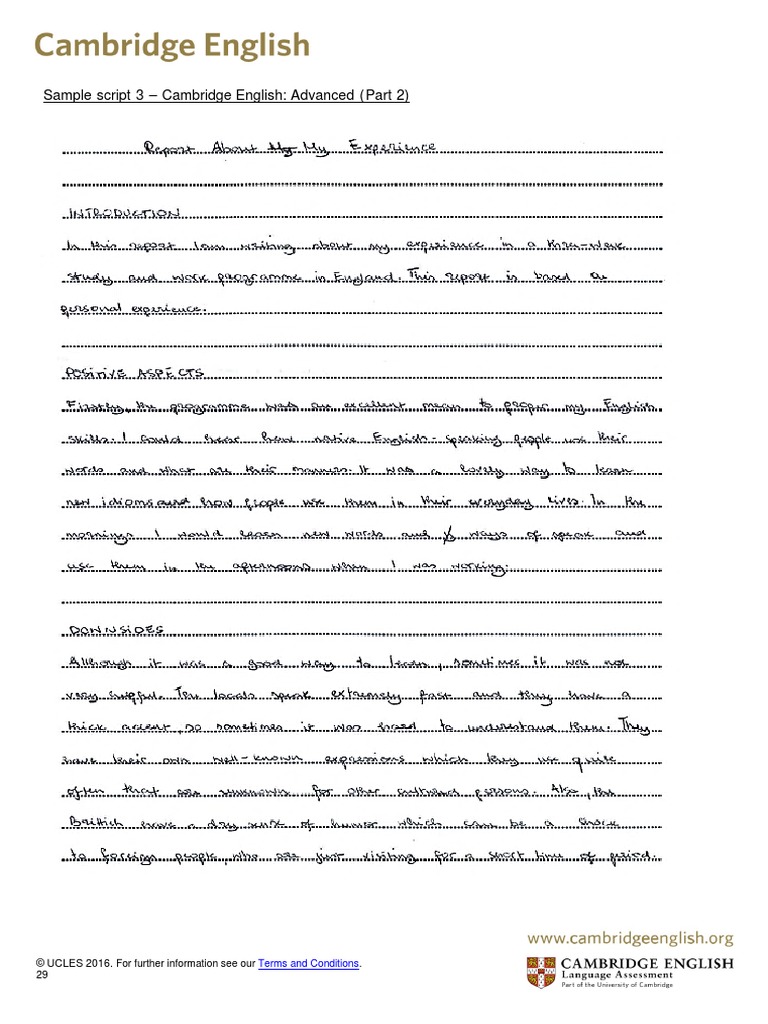 Cambridge English
Sample script 3 – Cambridge English: Advanced (Part 2)
Report About My My Experience
INTRODUCTION
In this report I am writing about my experience in a three-week
study and work programme in England. This report is based on
personal experience.
POSITIVE ASPECTS
Firstly, the programme was an excellent mean to my English
skills. I could hear how native English-speaking people use their
words and what are their manners. It was a lovely way to learn
new idioms and how people use them in their everyday lives. In the
mornings I would learn new words and ways of speak and
use them in the afternoons when I was working.
DOWNSIDES
Although it was a good way to learn, sometimes it was not
very helpful. The locals speak extremely fast and they have a
thick accent, so sometimes it was hard to understand them. They
have their own well-known expressions which they use quite
often that are unknown for other cultured persons. Also, the
Brittich have a dry sense of humor which can be a
to foreign people, who are just visiting for a short time of period.
www.cambridgeenglish.org
© UCLES 2016. For further information see our Terms and Conditions.
29
CAMBRIDGE ENGLISH
Language Assessment
Part of the University of Cambridge